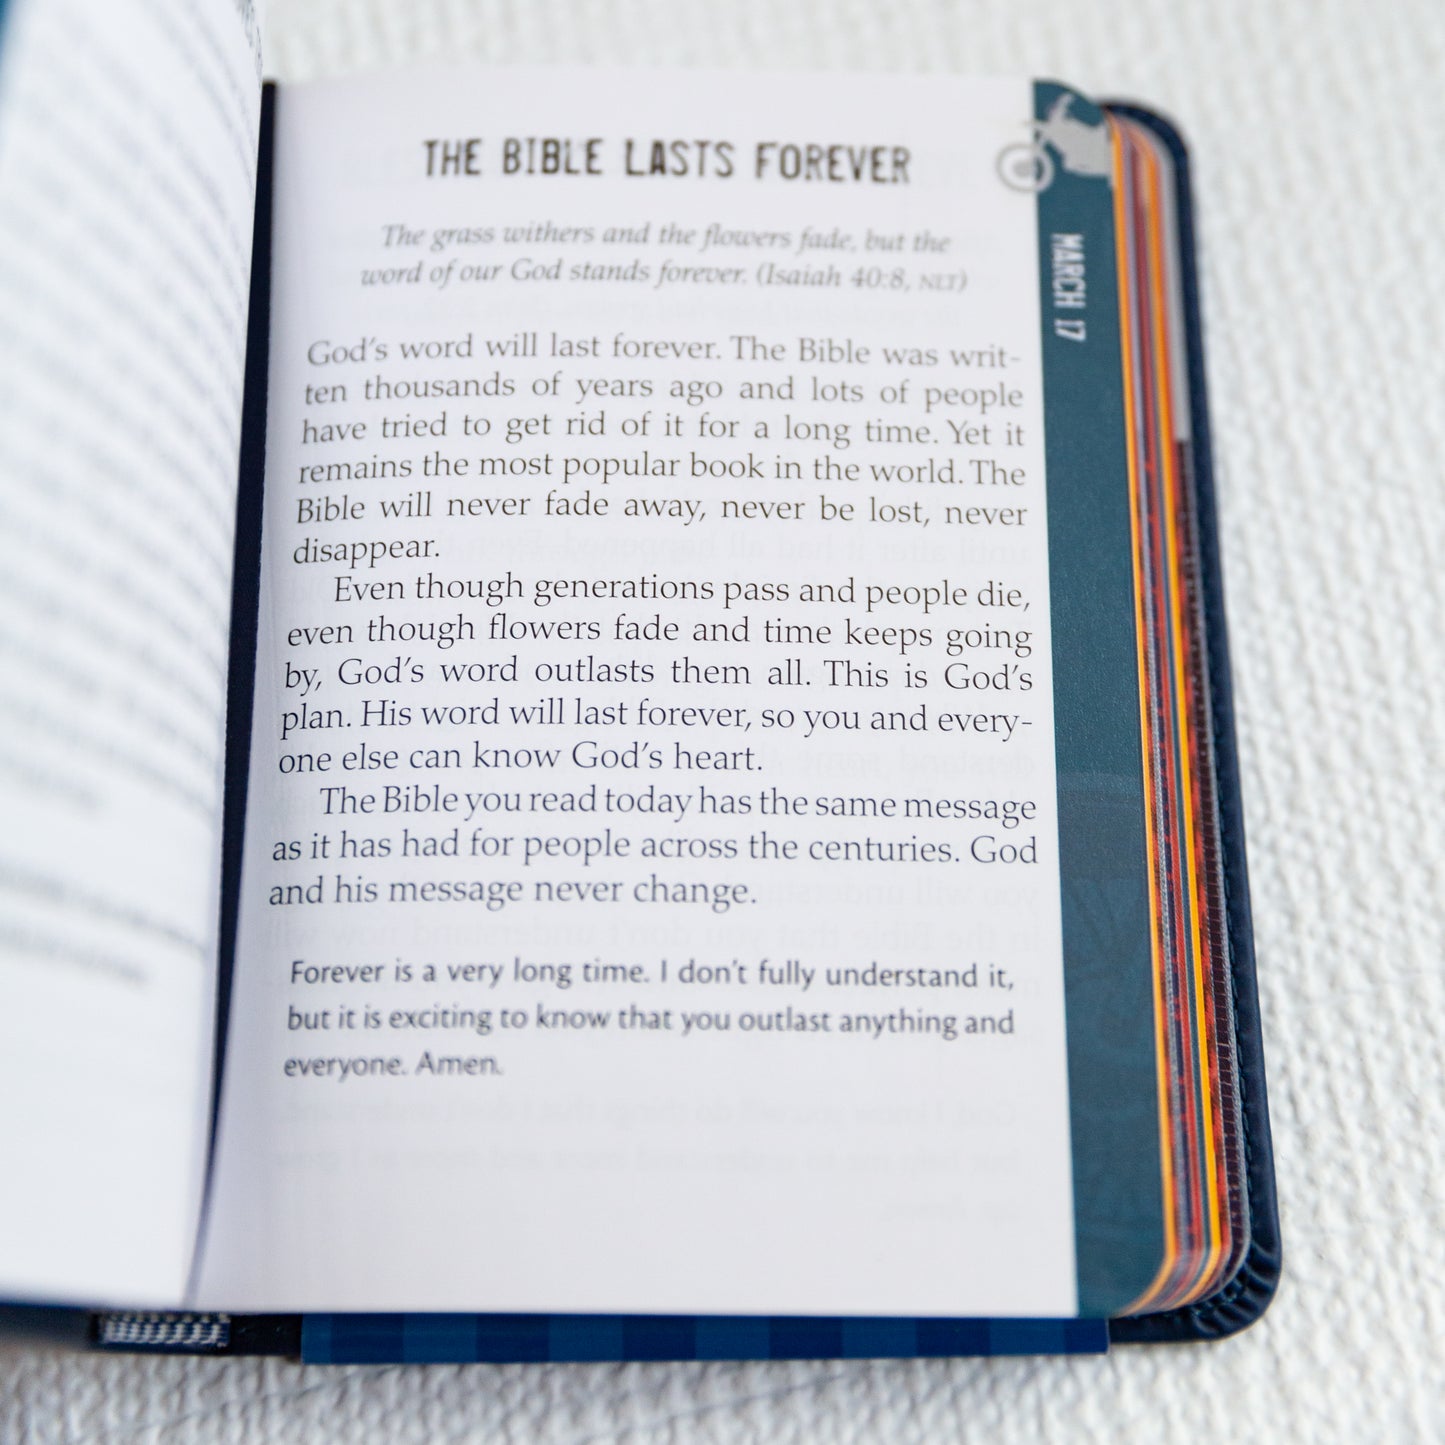 THE BIBLE LASTS FOREVER
The grass withers and the flowers fade, but the
word of our God stands forever. (Isaiah 40:8, NLT)
God's word will last forever. The Bible was writ-
ten thousands of years ago and lots of people
have tried to get rid of it for a long time. Yet it
remains the most popular book in the world. The
Bible will never fade away, never be lost, never
disappear.
Even though generations pass and people die,
even though flowers fade and time keeps going
by, God's word outlasts them all. This is God's
plan. His word will last forever, so you and every-
one else can know God's heart.
The Bible you read today has the same message
as it has had for people across the centuries. God
and his message never change.
Forever is a very long time. I don't fully understand it,
but it is exciting to know that you outlast anything and
everyone. Amen.
MARCH 17